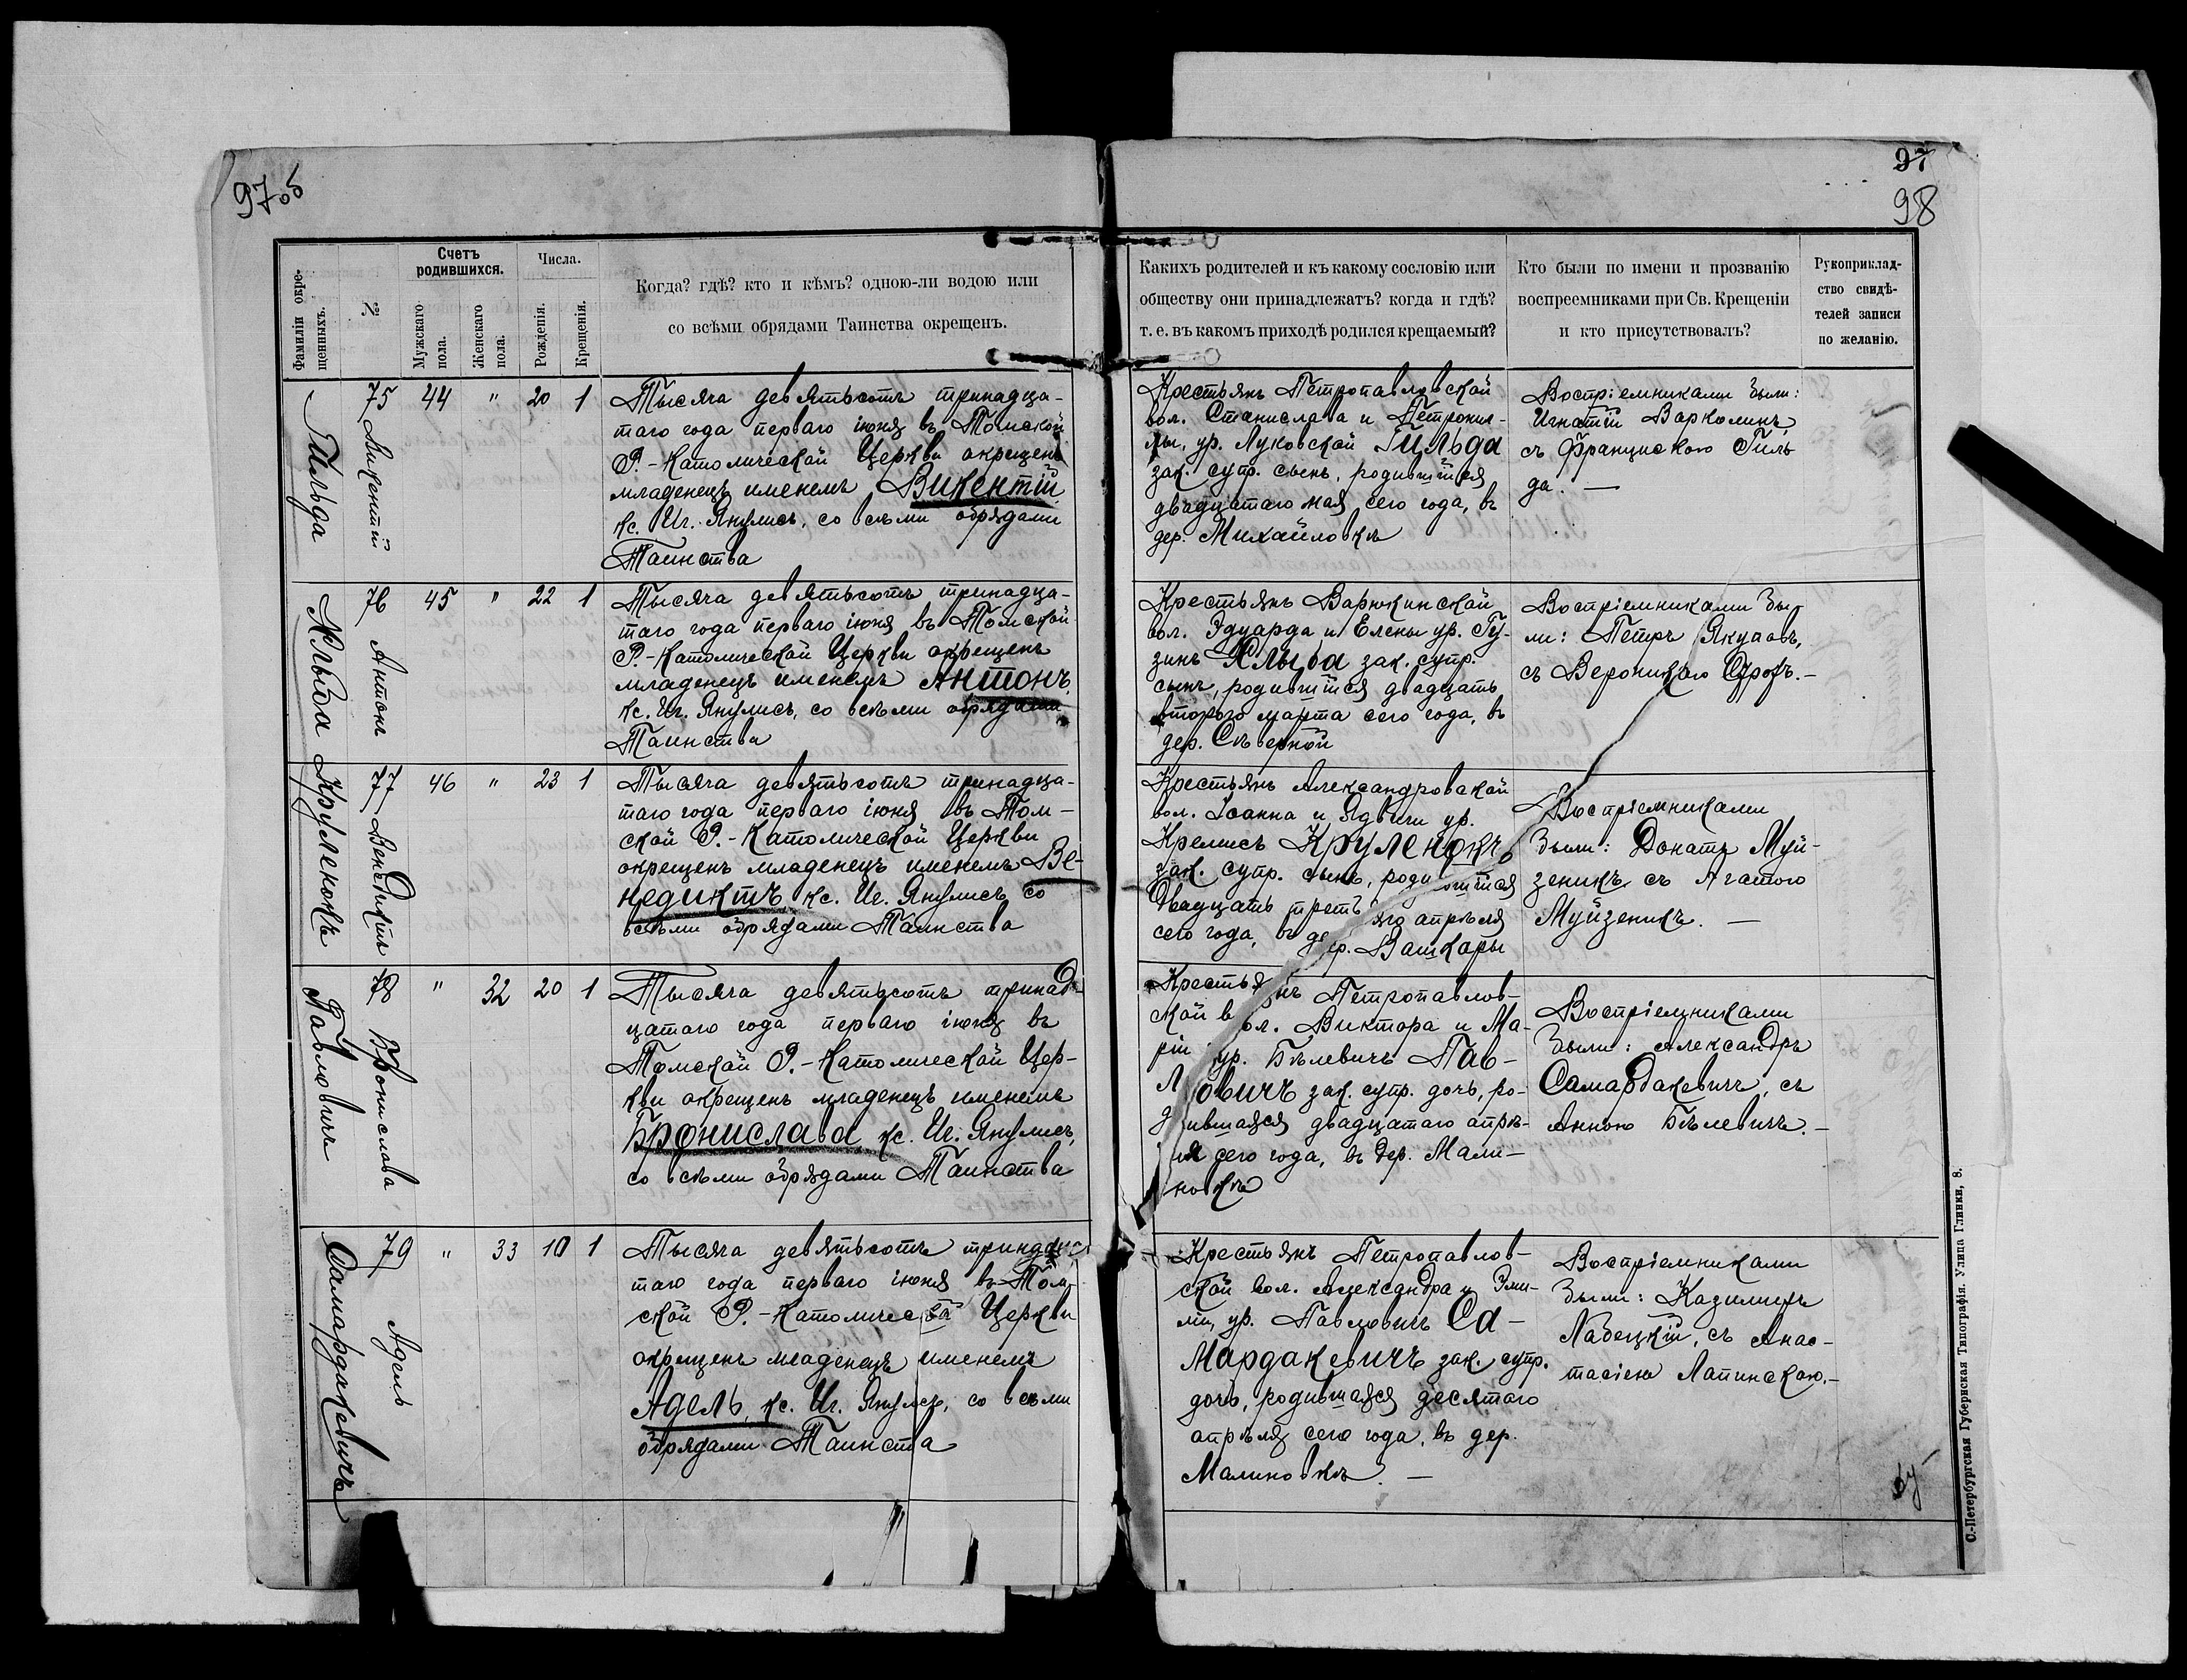 97 об
97
98
Фамиліи окре-
щенныхъ.
№
Счетъ
родившихся.
Мужскаго
пола.
Женскаго
пола.
Числа.
Рожденія.
Крещенія.
Когда? гдѣ? кто и кѣмъ? одною-ли водою или
со всѣми обрядами Таинства окрещенъ.
Какихъ родителей и къ какому сословію или
обществу они принадлежатъ? когда и гдѣ?
т. е. въ какомъ приходѣ родился крещаемый?
Кто были по имени и прозванію
воспреемниками при Св. Крещеніи
и кто присутствовалъ?
Рукоприклад-
ство свидѣ-
телей записи
по желанію.
Гильда
75 Викентій
44 " 20 1
Тысяча девятьсотъ тринадца-
таго года перваго іюня въ Томской
Р.-Католической Церкви окрещенъ
младенецъ именемъ Викентій
кс. Иг. Янулисъ, со всѣми обрядами
Таинства
Крестьянъ Петропавловской
вол. Станислава и Петронил-
лы, ур. Луковской Гильда
зак. супр. сынъ, родившійся
двадцатаго мая сего года, въ
дер. Михайловкѣ
Воспріемниками были:
Игнатій Варколинъ,
съ Францискою Гиль
да. —
Клыба
76 Антонъ
45 " 22 1
Тысяча девятьсотъ тринадца-
таго года перваго іюня въ Томской
Р.-Католической Церкви окрещенъ
младенецъ именемъ Антонъ,
кс. Иг. Янулисъ, со всѣми обрядами
Таинства
Крестьянъ Варюкинской
вол. Эдуарда и Елены ур. Гу-
зинъ Клыба зак. супр.
сынъ, родившійся двадцать
второго марта сего года, въ
дер. Сѣверной
Воспріемниками бы-
ли: Петръ Якубовъ,
съ Вероникою
Круленокъ
77 Венедиктъ
46 " 23 1
Тысяча девятьсотъ тринадца-
таго года перваго іюня въ Том-
ской Р.-Католической Церкви
окрещенъ младенецъ именемъ Ве-
недиктъ, кс. Иг. Янулисъ, со
всѣми обрядами Таинства
Крестьянъ Александровской
вол. Іоанна и Ядвиги ур.
Кремисъ Круленокъ
зак. супр. сынъ, родившійся
двадцать третьяго апрѣля
сего года, въ дер. Вашкары
Воспріемниками
были: Донатъ Муй-
зеникъ, съ Агатою
Муйзеникъ. —
Павловичъ
78 Бронислава
" 32 20 1
Тысяча девятьсотъ тринад-
цатаго года перваго іюня въ
Томской Р.-Католической Цер-
кви окрещенъ младенецъ именемъ
Бронислава, кс. Иг. Янулисъ,
со всѣми обрядами Таинства
Крестьянъ Петропавлов-
ской вол. Виктора и Ма-
ріи ур. Бѣлевичъ Пав-
ловичъ зак. супр. дочь, ро-
дившаяся двадцатаго апрѣ-
ля сего года, въ дер. Мали-
новкѣ
Воспріемниками
были: Александръ
Самардакевичъ, съ
Анною Бѣлевичъ. —
Самардакевичъ
79 Адель
" 33 10 1
Тысяча девятьсотъ тринадца-
таго года перваго іюня въ Том-
ской Р.-Католической Церкви
окрещенъ младенецъ именемъ
Адель, кс. Иг. Янулисъ, со всѣми
обрядами Таинства
Крестьянъ Петропавлов-
ской вол. Александра и Эми-
ліи, ур. Павловичъ Са-
мардакевичъ зак. супр.
дочь, родившаяся десятаго
апрѣля сего года, въ дер.
Малиновкѣ. —
Воспріемниками
были: Казимиръ
Лабецкій, съ Анас-
тасіею Лапинскою. —
С.-Петербургская Губернская Типографія. Улица Глинки, 8.